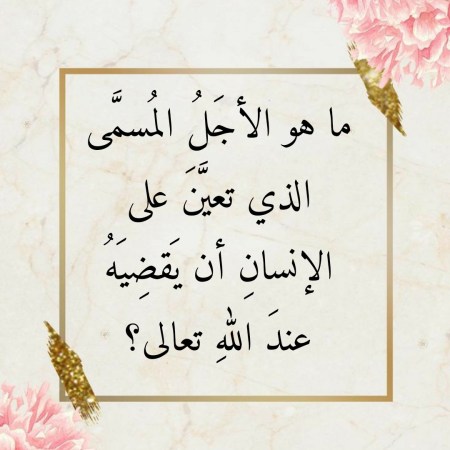 ما هو الأجَلُ المُسمَّى
الذي تعيَّنَ على
الإنسانِ أن يَقضِيَهُ
عندَ اللهِ تعالى؟